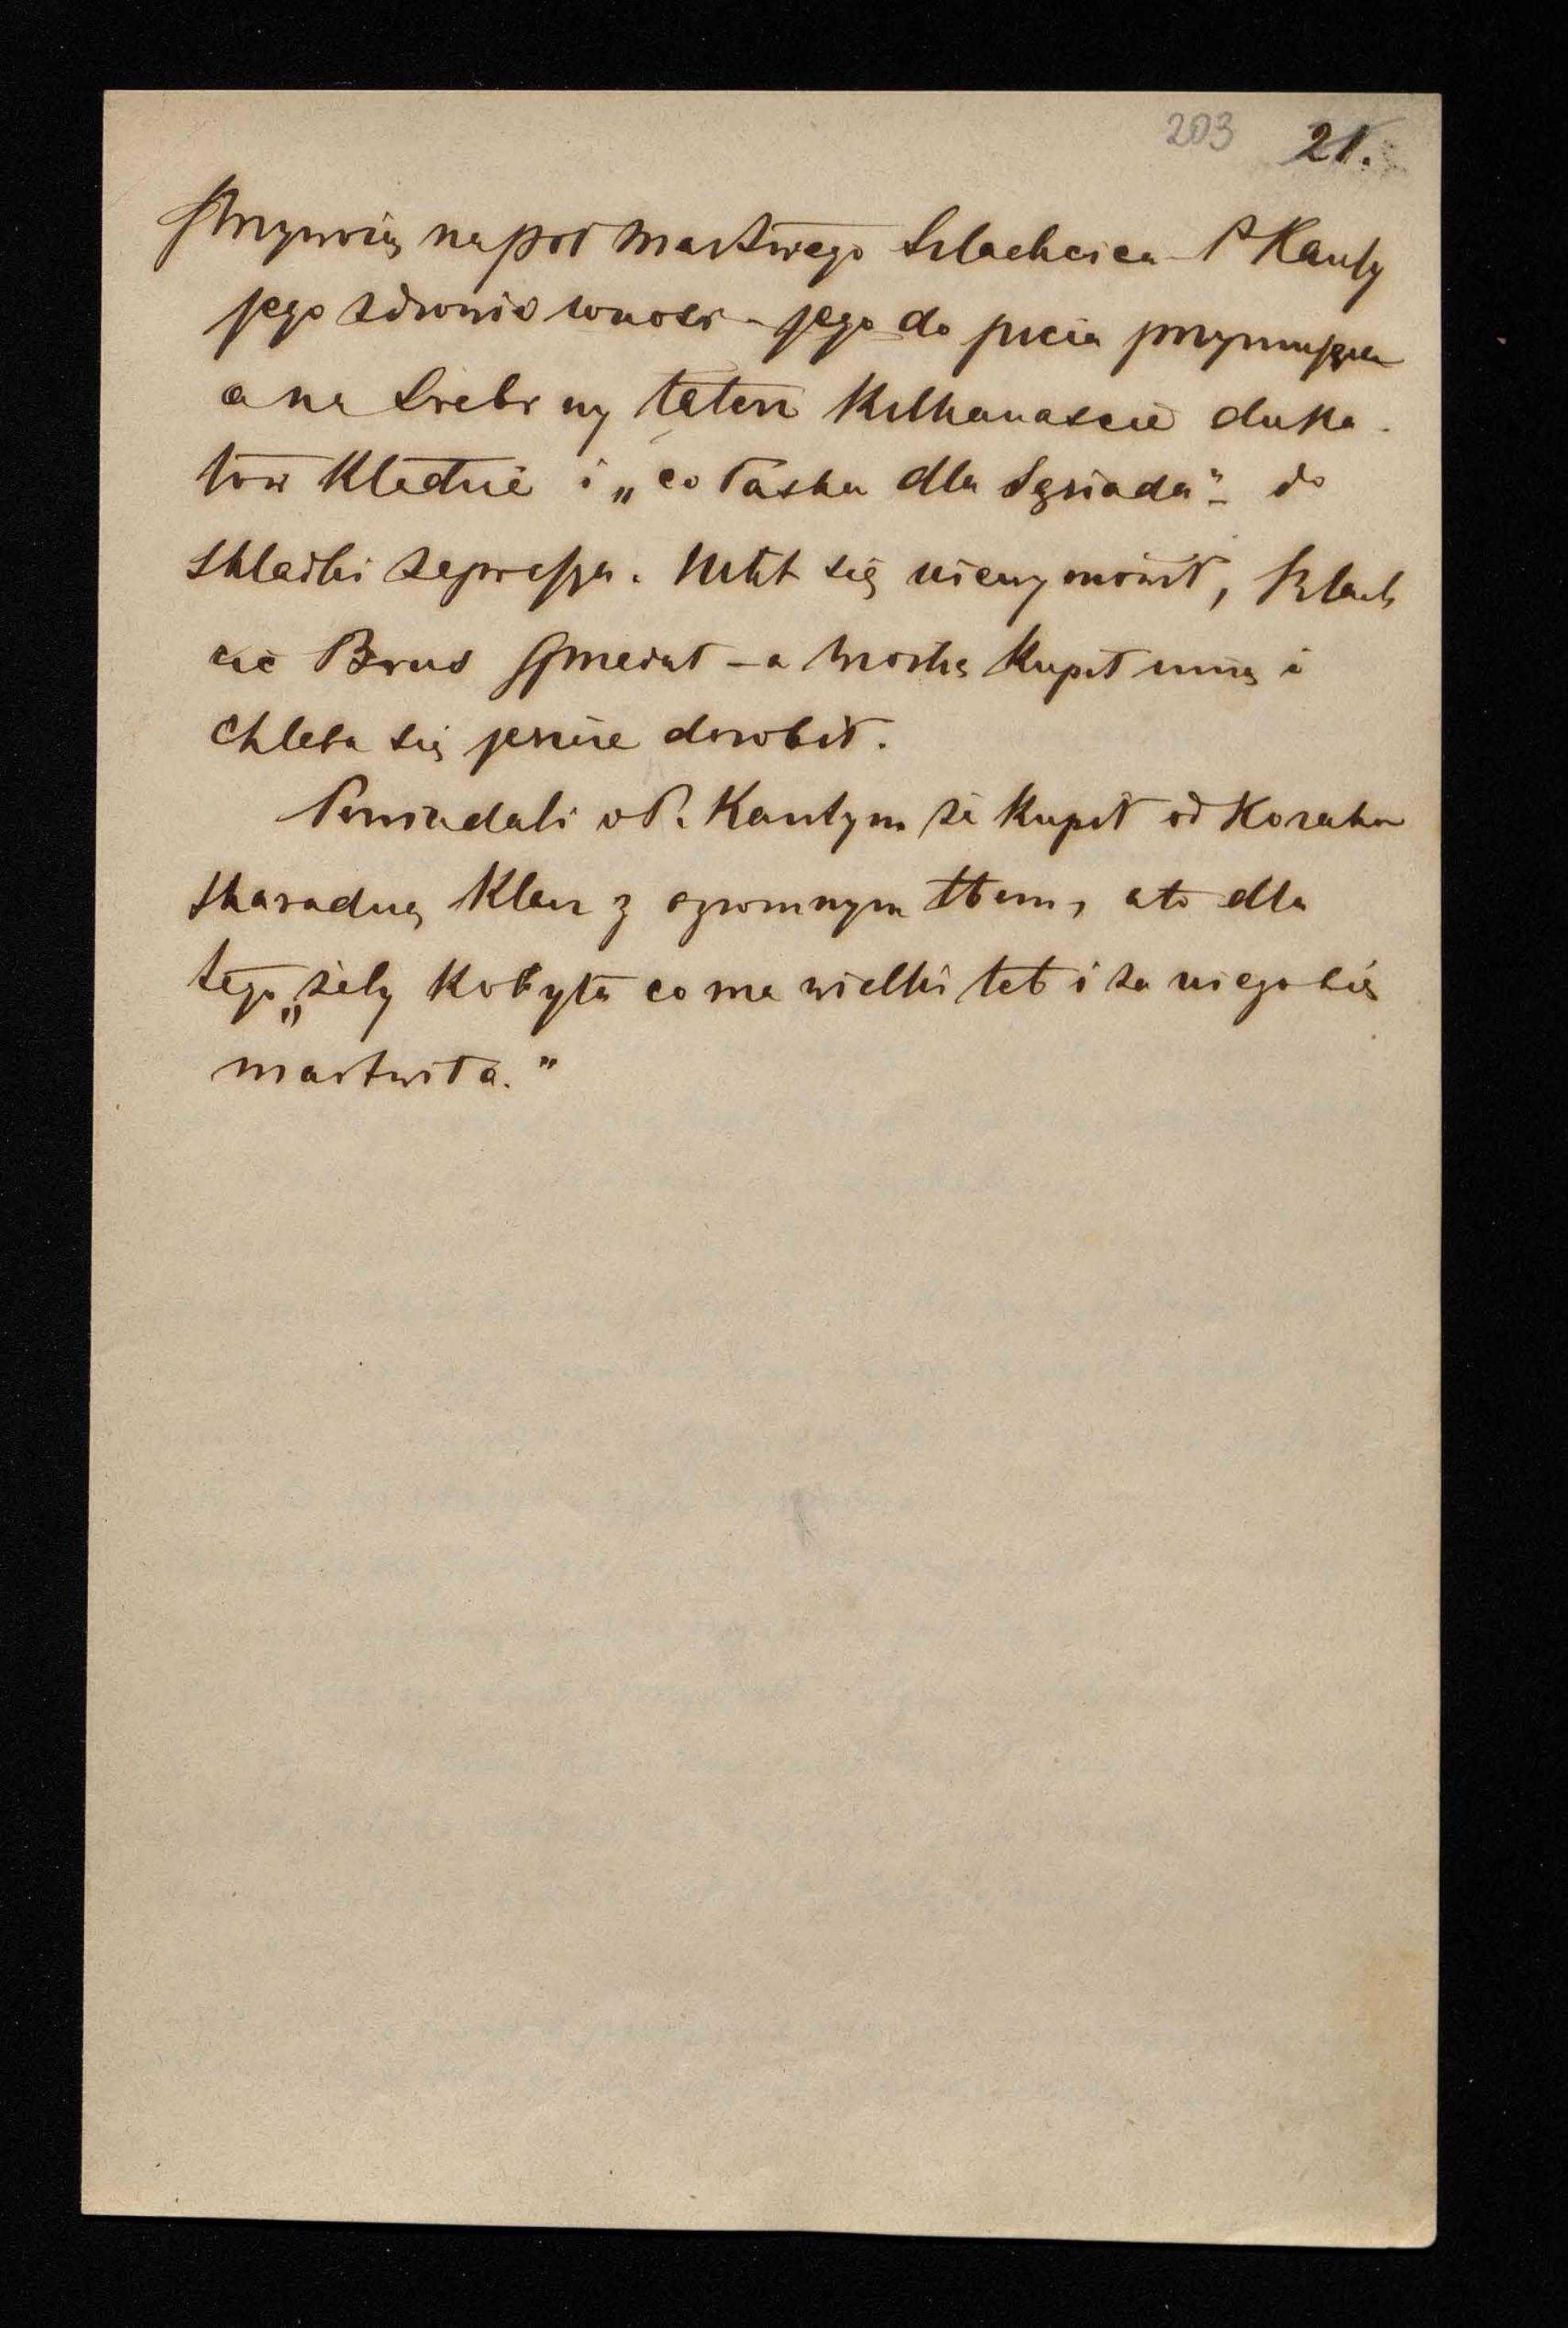 203 21.
Przywiozą na pół martwego Szlachcica P Kanty
jego zdrowie wnosi - jego do picia przymusza
a na Srebrny talerz Kilkanaście duka-
tów Kładzie i „co łaska dla Sąsiada" - do
składki zaprasza. Nikt się niewymówił, Szlach
cic Brus spłacił - a wioskę kupił inną i
chleba się jeszcze dorobił.
Powiadali o P. Kantym że kupił od Kozaka
szkaradną Klacz z ogromnym łbem, a to dla
tego „żeby Kobyła co ma wielki łeb i za niego się
martwiła."